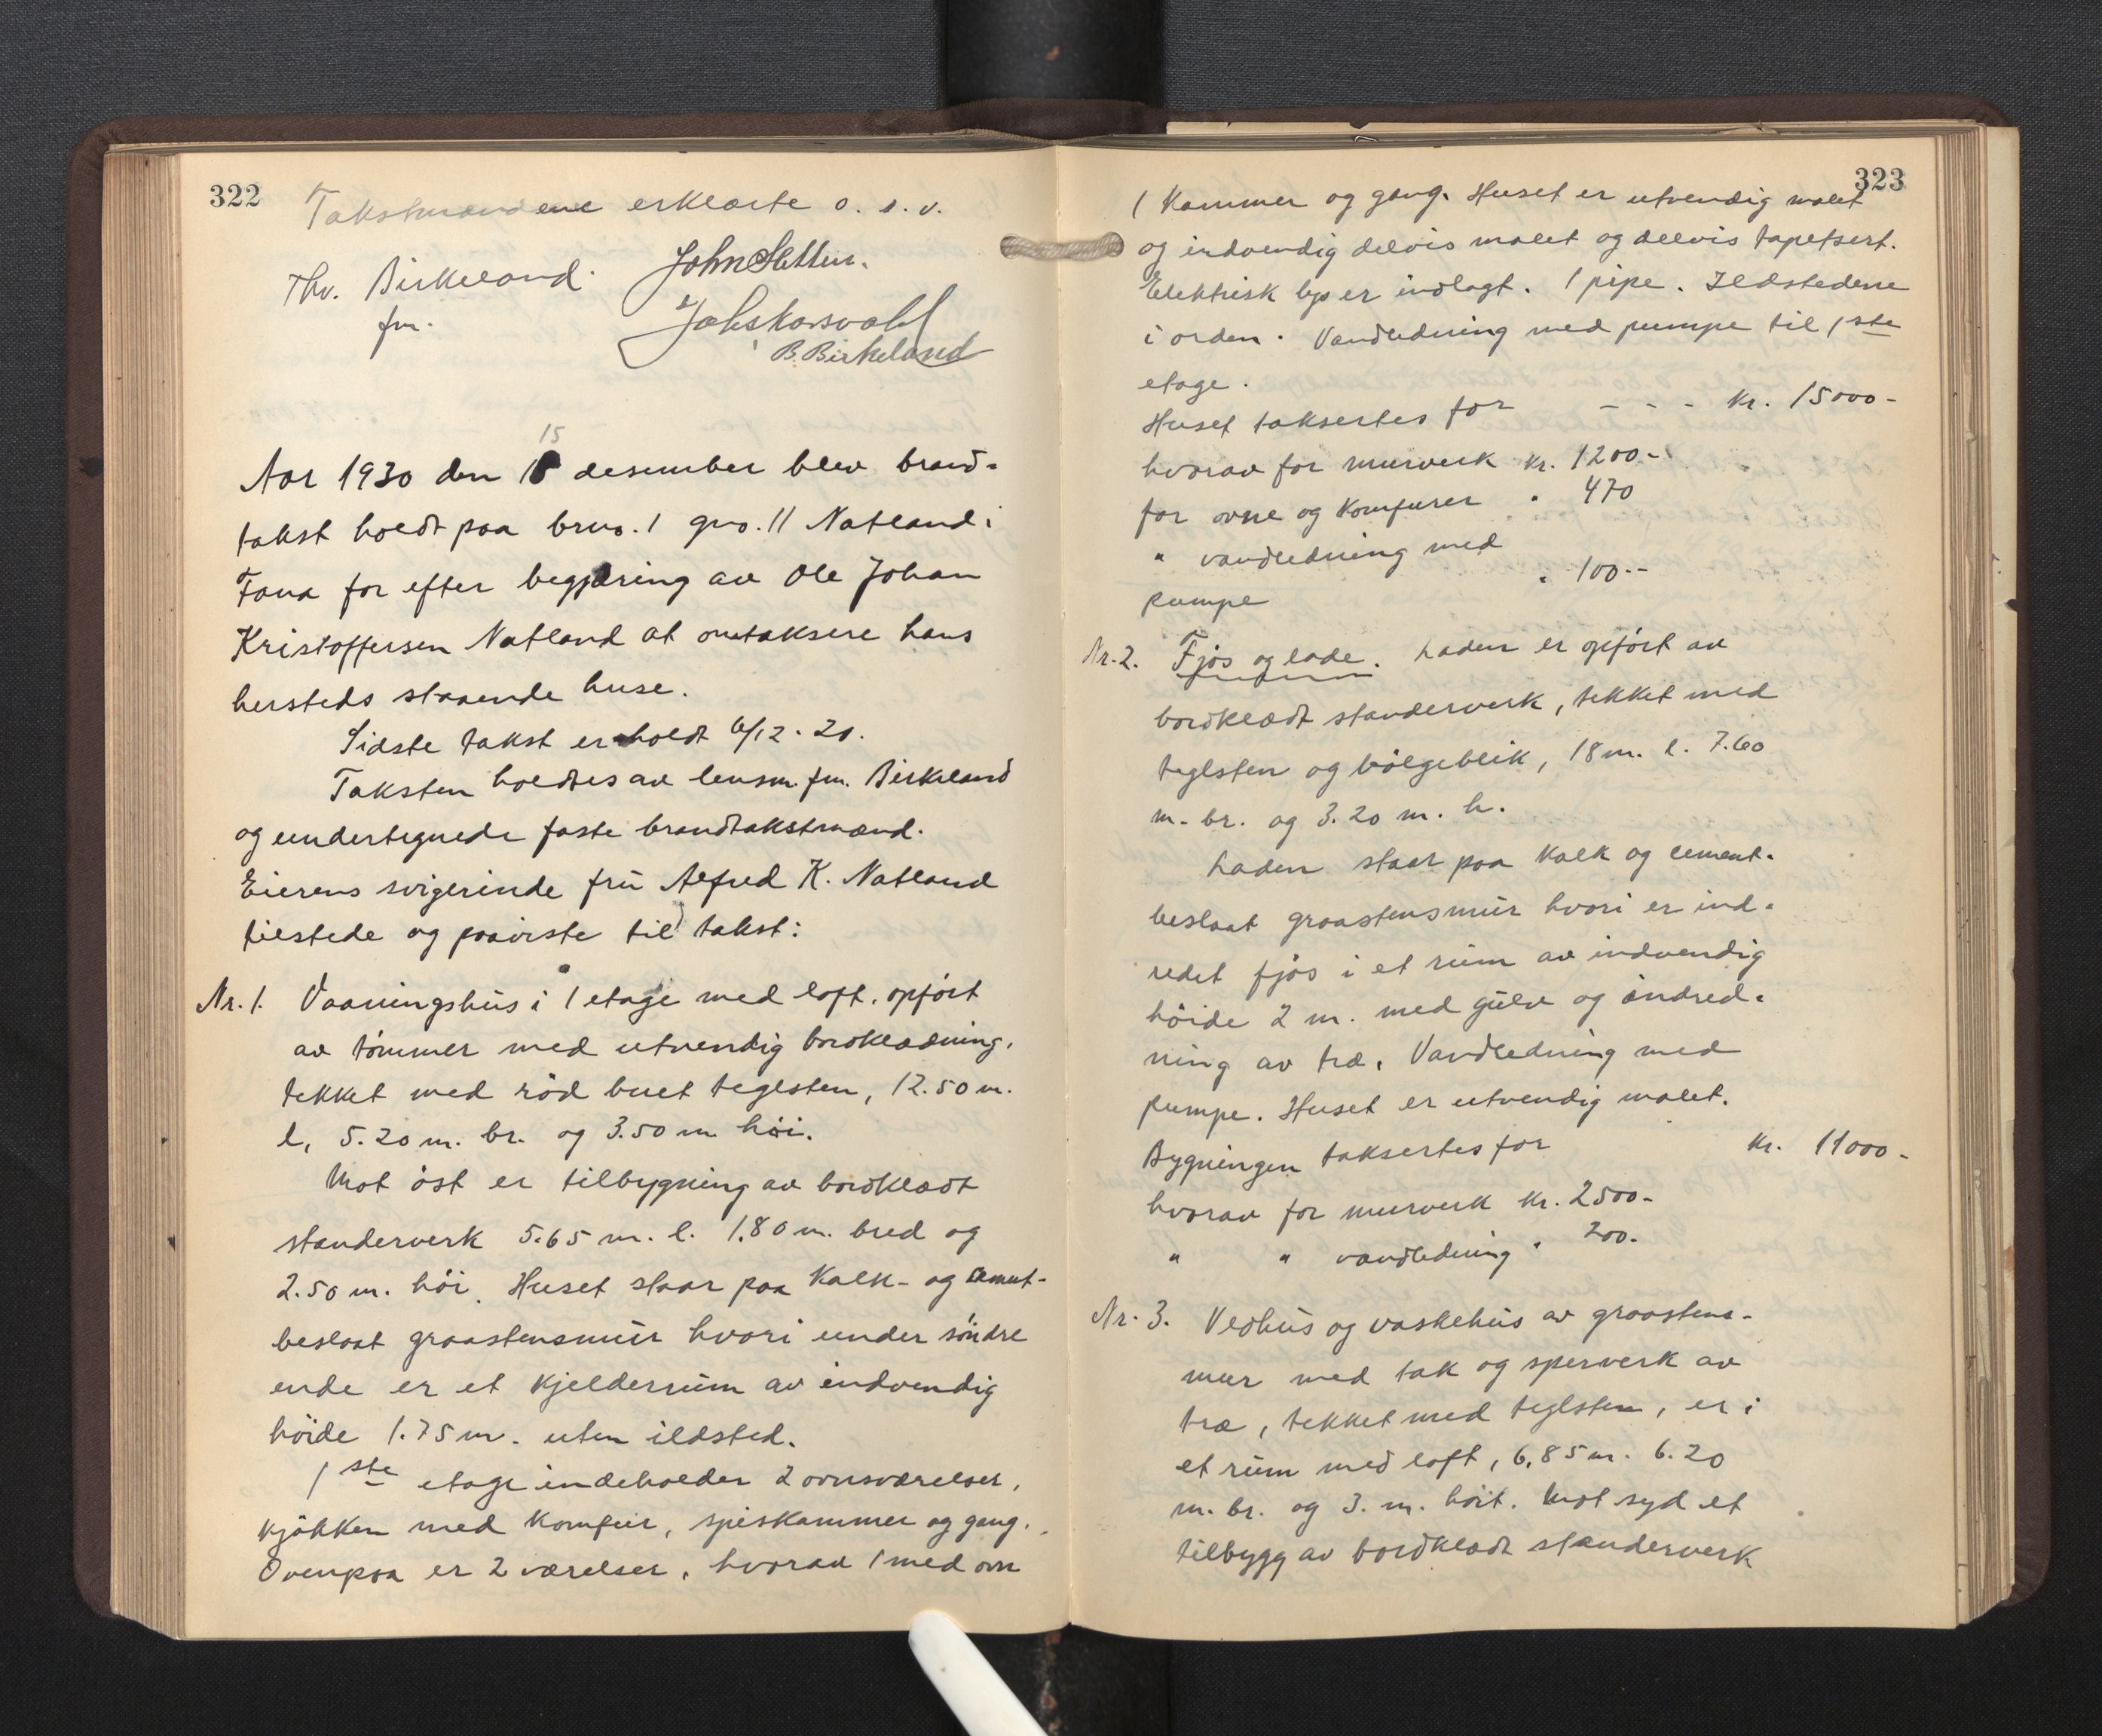 322
Takstmændene erklærte o. s. v.
Thv. Birkeland. John Sletten.
fm. Joh. Korsvold
B. Birkeland
15
Aar 1930 den 15 desember blev brand-
takst holdt paa brno. 1 gno. 11 Natland i
Fana for efter begjæring av Ole Johan
Kristoffersen Natland at omtaksere hans
hersteds staaende huse.
Sidste takst er holdt 6/12 - 20.
Taksten holdtes av lensm. fm. Birkeland
og undertegnede faste brandtakstmænd.
Eierens svigerinde fru Alfred K. Natland
tilstede og paaviste til takst:
Nr. 1. Vaaningshus i 1 etage med loft, opført
av tømmer med utvendig bordklædning,
tekket med rød buet teglsten, 12.50 m.
l, 5.20 m. br. og 3.50 m høi.
Mot øst er tilbygning av bordklædt
standerverk 5.65 m. l. 1.80 m. bred og
2.50 m. høi. Huset staar paa kalk- og cement-
beslaat graastensmur hvori under søndre
ende er et kjelderrum av indvendig
høide 1.75 m. uten ildsted.
1ste etage indeholder 2 ovnsværelser,
kjøkken med komfur, spiskammer og gang.
Ovenpaa er 2 værelser, hvorav 1 med ovn
323
1 kammer og gang. Huset er utvendig malet
og indvendig delvis malet og delvis tapetsert.
Elektrisk lys er indlagt. 1 pipe. Ildstedene
i orden. Vandledning med pumpe til 1ste
etage.
Huset taksertes for - - - kr. 15000-
hvorav for murverk kr. 1200-
for ovne og komfurer " 470
" vandledning med
pumpe " 100--
Nr. 2. Fjøs og lade. Laden er opført av
bordklædt standerverk, tekket med
teglsten og bølgeblik, 18 m. l. 7.60
m. br. og 3.20 m. h.
Laden staar paa kalk og cement-
beslaat graastensmur hvori er ind-
redet fjøs i et rum av indvendig
høide 2 m. med gulv og indred-
ning av træ. Vandledning med
pumpe. Huset er utvendig malet.
Bygningen taksertes for kr. 11000-
hvorav for murverk kr. 2500-
" " vandledning " 200-
Nr. 3. Vedhus og vaskehus av graastens-
mur med tak og sperverk av
træ, tekket med teglsten, er i
et rum med loft, 6,85 m. 6.20
m. br. og 3. m. høit. Mot syd et
tilbygg av bordklædt standerverk